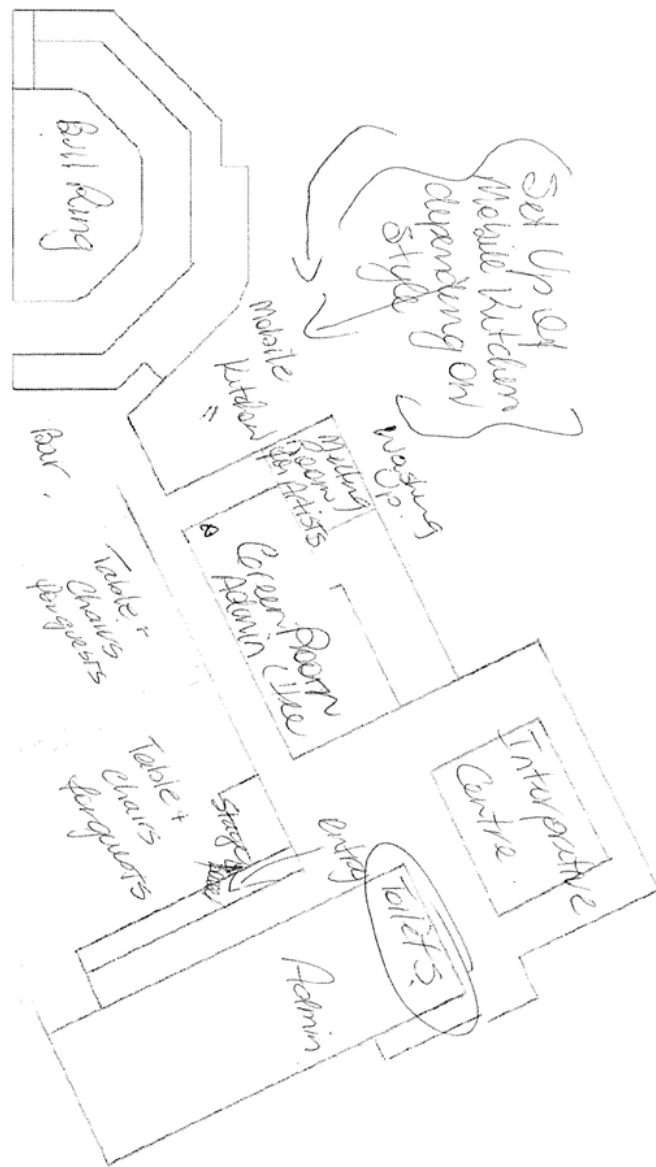 Bull Ring
Set Up of
Mobile Kitchen
depending on
Style
Mobile
Kitchen
Washing
Up.
Meeting
Room
for Artists
Green Room
Admin Use
Bar
Table +
Chairs
for guests
Table +
Chairs
for guests
Stage
entry
Interpretive
Centre
Toilets
Admin